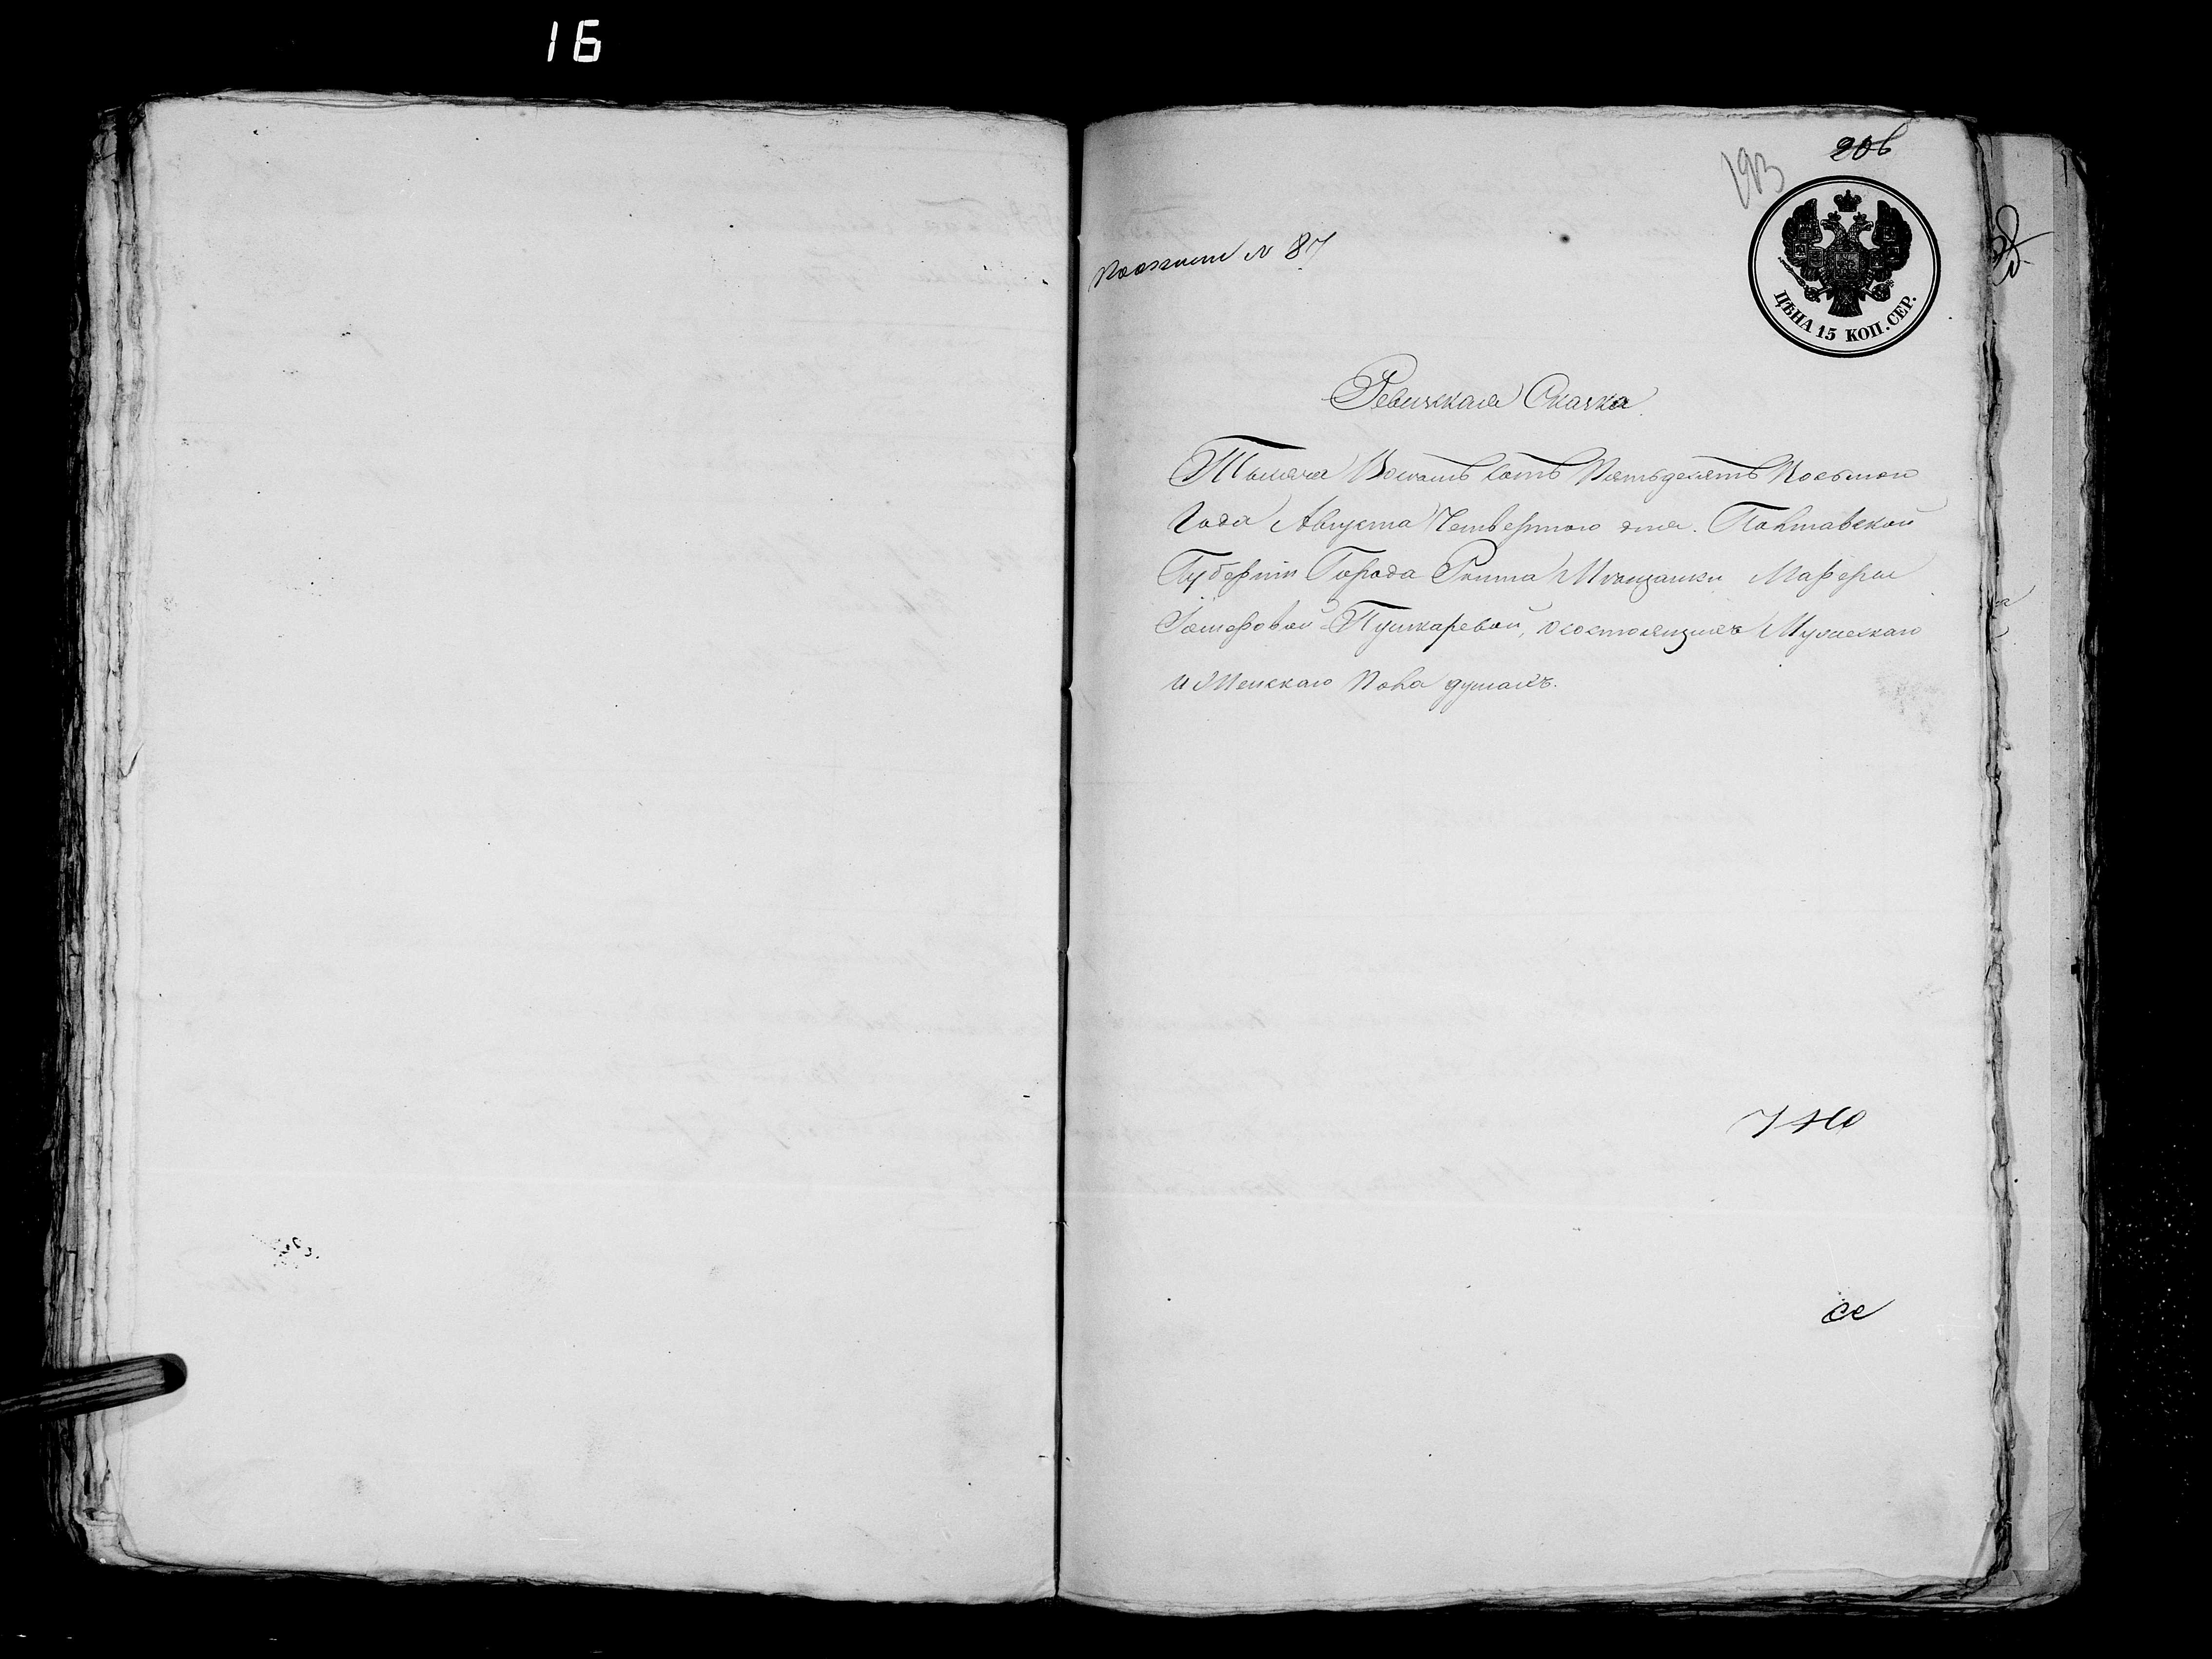 16
206
193
№ 87
ЦѢНА 15 КОП. СЕР.
Ревизская Сказка
Тысяча Восемь сотъ Пятьдесятъ Восьмого
Года Августа Четвертого дня. Полтавской
Губерніи Города Ромна Мѣщанки
Пушкаревой, о состоящихъ Мужеска
и Женскаго Пола душахъ.